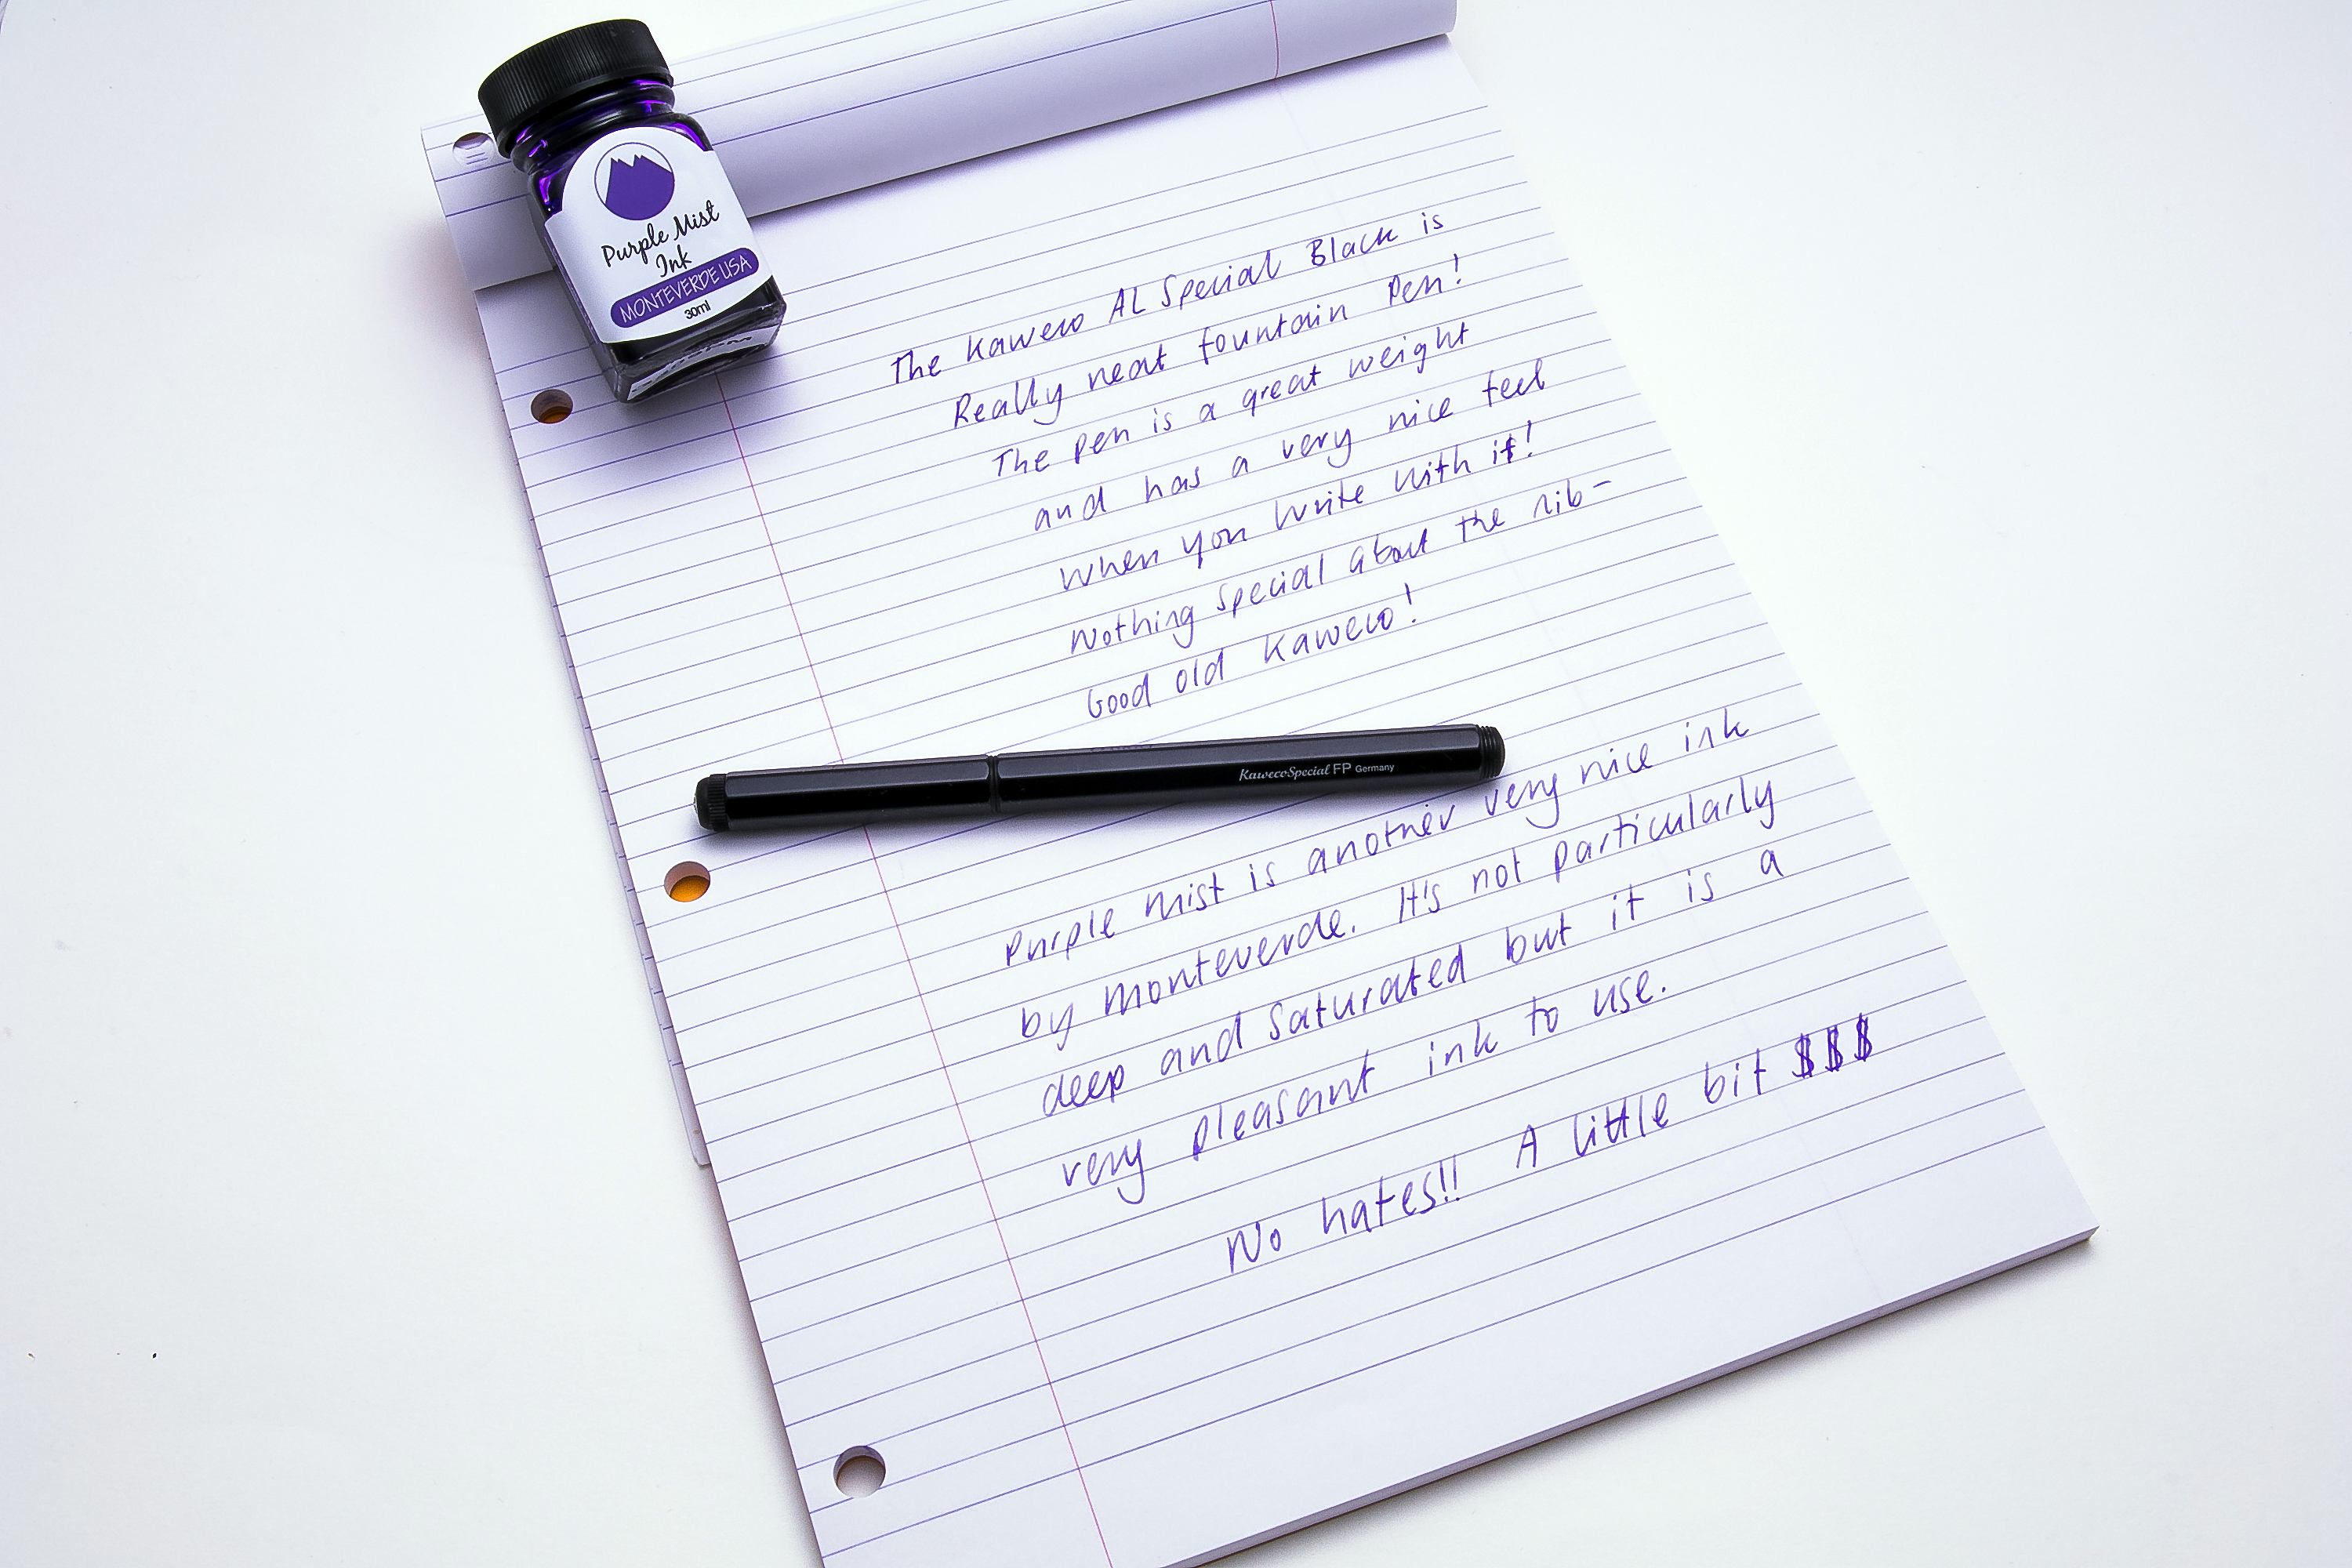 Purple Mist
Ink
MONTEVERDE USA
30ml
The Kaweco AL Special Black is
Really neat fountain pen!
The pen is a great weight
and has a very nice feel
when you write with it!
Nothing special about the nib -
Good old Kaweco!
KawecoSpecial FP Germany
Purple Mist is another very nice ink
by Monteverde. It's not particularly
deep and saturated but it is a
very pleasant ink to use.
No hates!! A little bit $$$